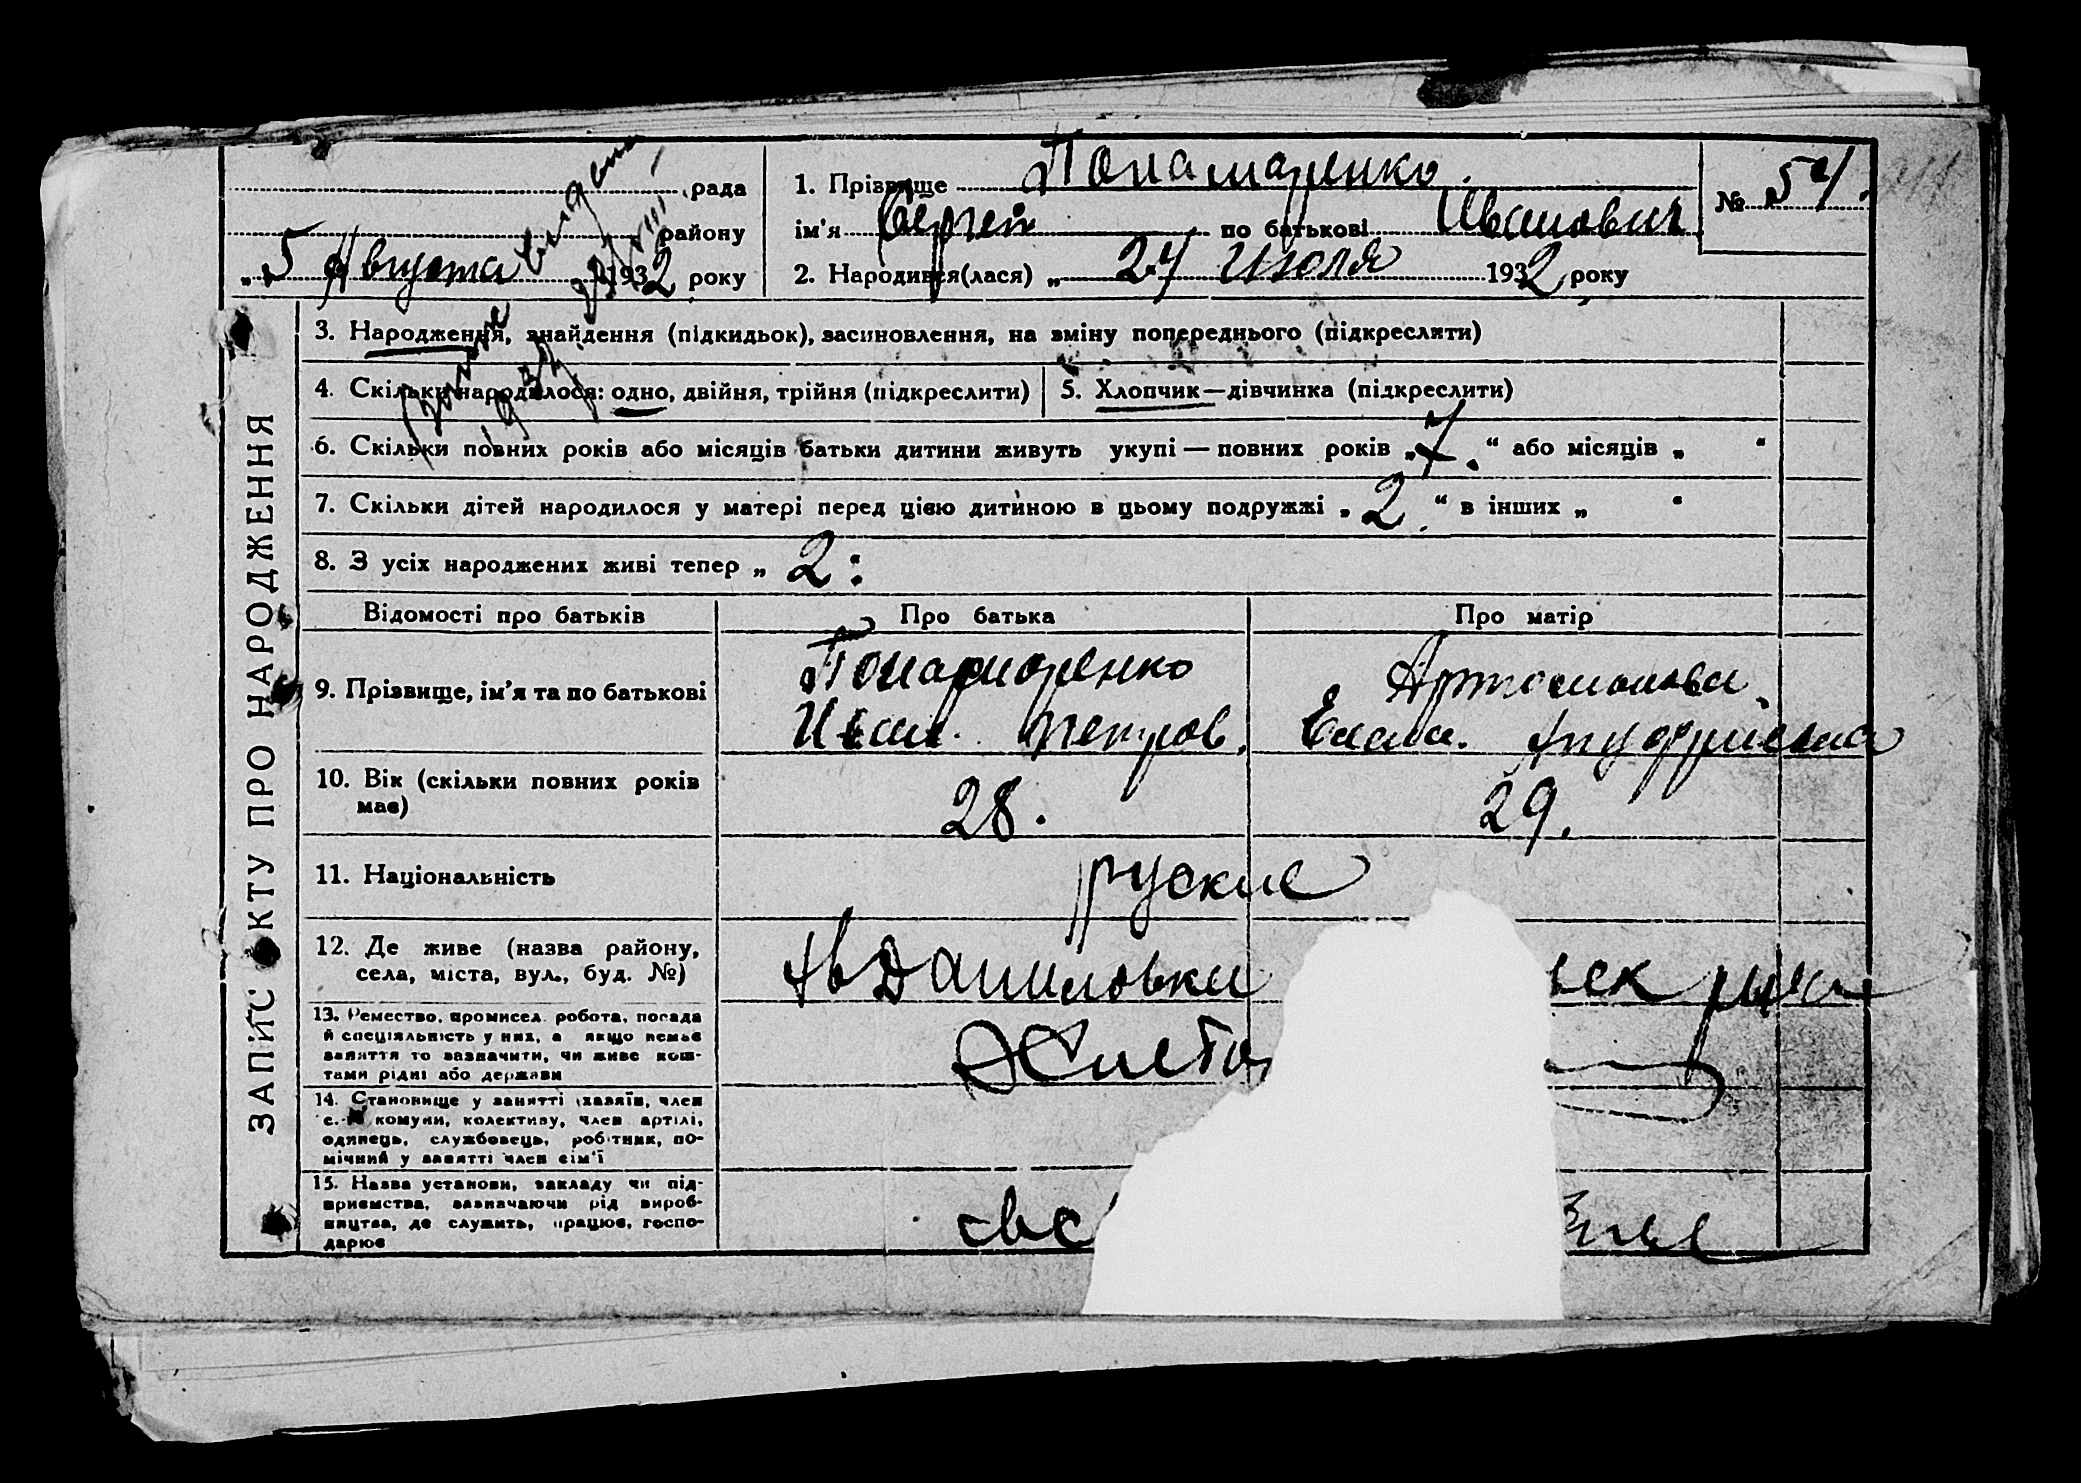 рада
району
„ 5 Августа 1932 року
1. Прізвище Понамаренко.
ім'я Сергей по батькові Иванович
2. Народився(лася) „ 24 Июля 1932 року
№ 54.
3. Народження, знайдення (підкидьок), засиновлення, на зміну попереднього (підкреслити)
4. Скільки народилося: одно, двійня, трійня (підкреслити)
5. Хлопчик—дівчинка (підкреслити)
6. Скільки повних років або місяців батьки дитини живуть укупі — повних років „ 7. “ або місяців „ “
7. Скільки дітей народилося у матері перед цією дитиною в цьому подружжі „ 2 “ в інших „ “
8. З усіх народжених живі тепер „ 2:
Відомості про батьків
Про батька
Про матір
9. Прізвище, ім'я та по батькові
Понамаренко
Иван. Петров.
Артомонова
Елена.
10. Вік (скільки повних років
має)
28.
29.
11. Національність
руские
12. Де живе (назва району,
села, міста, вул., буд. №)
13. Ремество, промисел, робота, посада
й спеціяльність у них, а якщо немає
заняття то зазначити, чи живе кош-
тами рідні або держави
14. Становище у занятті (хазяїн, член
с.-г. комуни, колективу, член артілі,
одинець, службовець, робітник, по-
мічний у занятті член сім'ї
15. Назва установи, закладу чи під-
приємства, зазначаючи рід вироб-
ництва, де служить, працює, госпо-
дарює
ЗАПИС АКТУ ПРО НАРОДЖЕННЯ